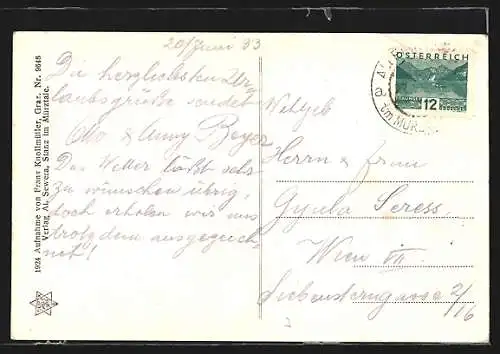 20/Juni 33
Die herzlichsten Ur-
laubsgrüße sendet
Otto & Anny Beyer
Das Wetter läßt sehr
zu wünschen übrig,
doch erholen wir uns
trotzdem ausgezeich-
net!
1924 Aufnahme von Franz Knollmüller, Graz. Nr. 9646
Verlag Al. Sewera, Stanz im Mürztale.
ÖSTERREICH
12
im MÜRZ
Herrn & Frau
Gyula Seress
Wien VII.
Siebensterngasse 2/16